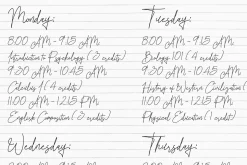 Monday:
8:00 AM - 9:15 AM:
Introduction to Psychology (3 credits)
9:30 AM - 10:45 AM:
Calculus I (4 credits)
11:00 AM - 12:15 PM:
English Composition (3 credits)
Wednesday:
Tuesday:
8:00 AM - 9:15 AM:
Biology 101 (4 credits)
9:30 AM - 10:45 AM:
History of Western Civilization
11:00 AM - 12:15 PM:
Physical Education (1 credit)
Thursday: